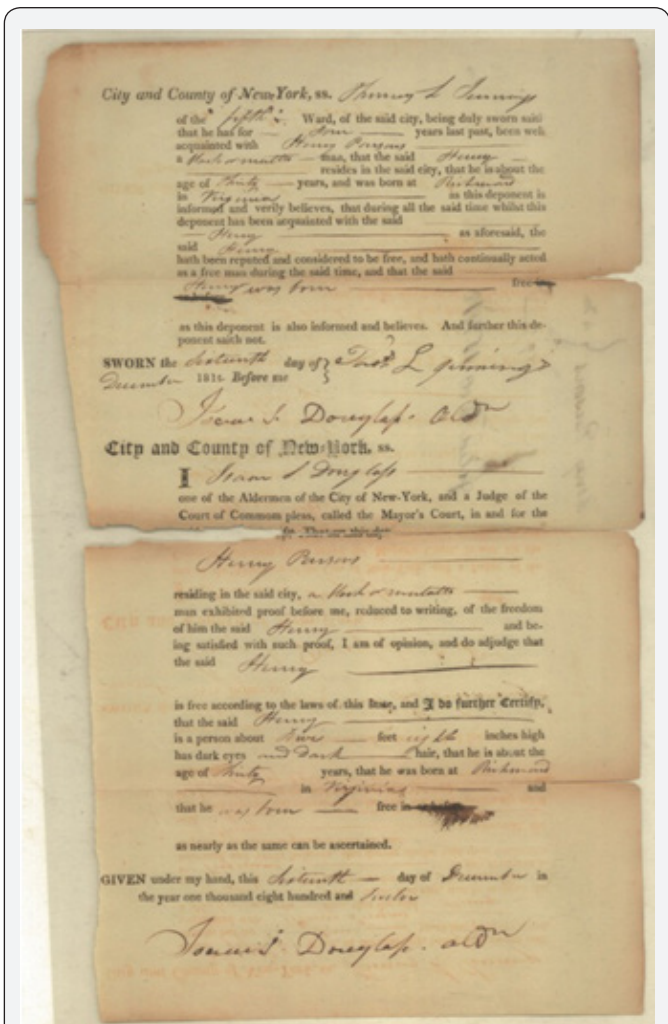 City and County of New-York, ss. Thomas L Jennings
of the fifth Ward, of the said city, being duly sworn said
that he has for four years last past, been well
acquainted with Henry Parsons
a black or mulatto man, that the said Henry
resides in the said city, that he is about the
age of thirty years, and was born at Richmond
in Virginia as this deponent is
informed and verily believes, that during all the said time whilst this
deponent has been acquainted with the said
Henry as aforesaid, the
said Henry
hath been reputed and considered to be free, and hath continually acted
as a free man during the said time, and that the said
Henry was born free
as this deponent is also informed and believes. And further this de-
ponent saith not.
SWORN the sixteenth day of Thos. L Jennings
December 181 Before me
Isaac S. Douglass. Aldn
City and County of New-York, ss.
I Isaac S Douglass
one of the Aldermen of the City of New-York, and a Judge of the
Court of Common pleas, called the Mayor's Court, in and for the
That on this day
Henry Parsons
residing in the said city, a black or mulatto
man exhibited proof before me, reduced to writing, of the freedom
of him the said Henry and be-
ing satisfied with such proof, I am of opinion, and do adjudge that
the said Henry
is free according to the laws of this State, and I do further Certify,
that the said Henry
is a person about five feet eight inches high
has dark eyes and Dark hair, that he is about the
age of thirty years, that he was born at Richmond
in Virginia and
that he was born free in
as nearly as the same can be ascertained.
GIVEN under my hand, this sixteenth day of December in
the year one thousand eight hundred and twelve
Isaac S. Douglass. aldn